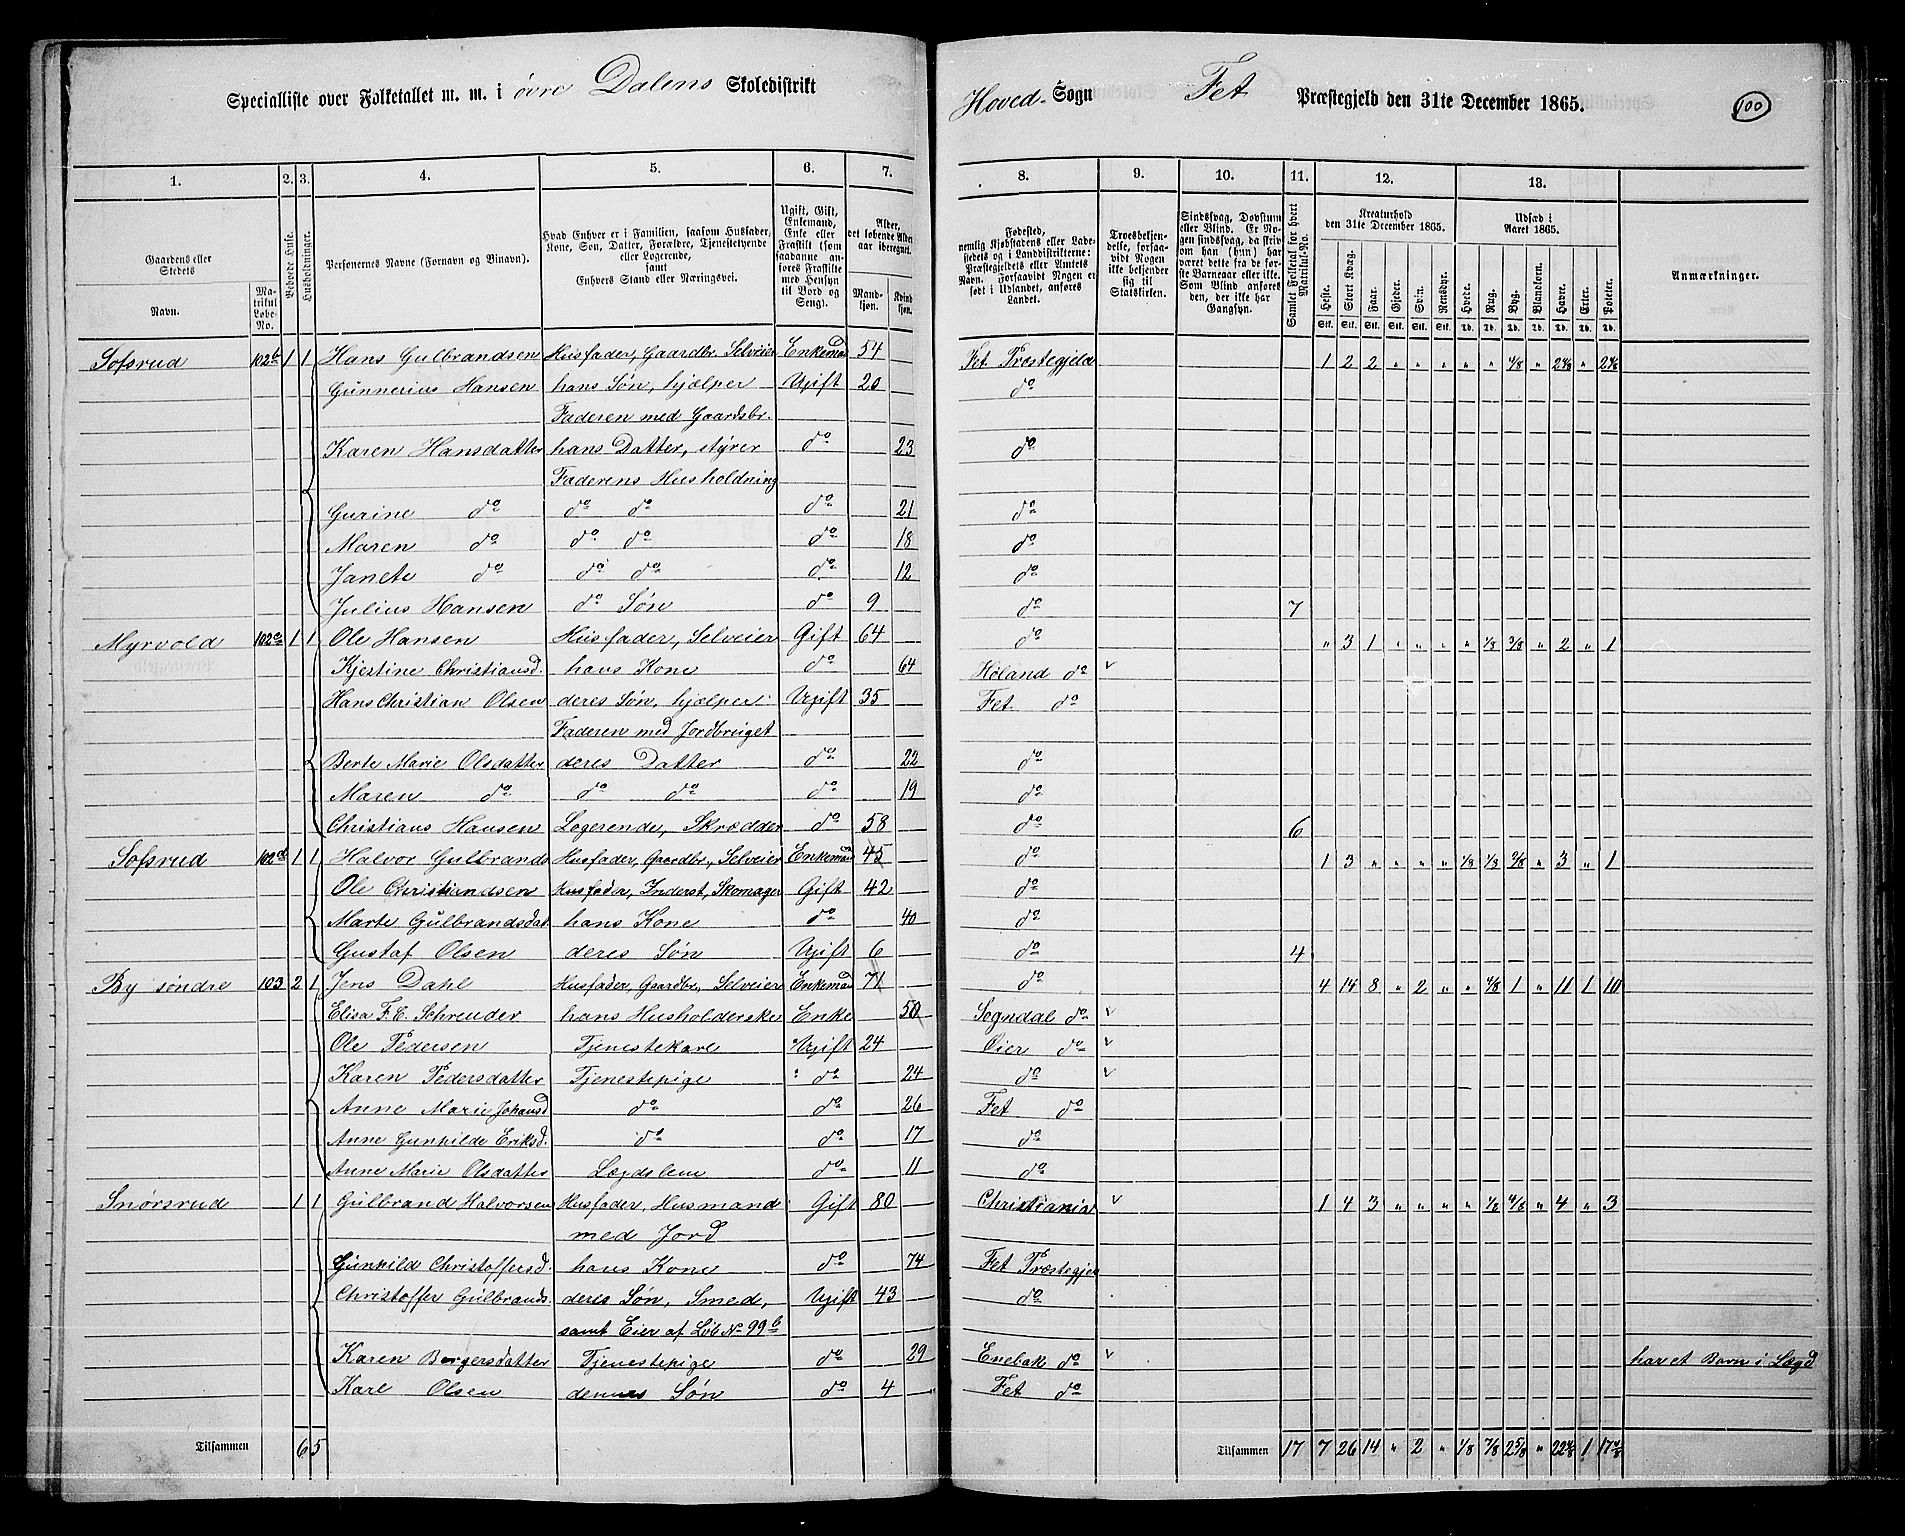 Specialliste over Folketallet m. m. i øvre Dalens Skoledistrikt
Hoved-Sogn Fet Præstegjeld den 31te December 1865.
100
1. 2. 3. 4. 5. 6. 7.
8. 9. 10. 11. 12. 13.
Gaardens eller Stedets
Navn.
Matrikul Løbe-No.
Beboede Huse.
Husholdninger.
Personernes Navne (Fornavn og Tilnavn).
Hvad Enhver er i Familien, saasom Husfader, Kone, Søn, Datter, Forældre, Tjenestetyende eller Logerende, samt Enhvers Stand eller Næringsvei.
Ugift, Gift, Enkemand, Enke eller Fraskilt (som saadanne anføres Fraskilte med Hensyn til Bord og Seng).
Alder, det løbende Alders aar iberegnet.
Mandkjøn. Kvindkjøn.
Fødested, nemlig Kjøbstadens eller Ladestedets og i Landdistrikterne: Præstegjeldets eller Amtets Navn. Forsaavidt Nogen er født i Udlandet, anføres Landet.
Troesbekjendelse, forsaavidt Nogen ikke bekjender sig til Statskirken.
Sindssvag, Døvstum eller Blind. Er Nogen sindssvag, da skriv om han (hun) har været dette fra de første Barneaar eller ikke. Som Blind anføres den, der ikke har Gangsyn.
Samlet Folketal for hvert Matrikul-No.
Kreaturhold den 31te December 1865.
Heste. Stort Kvæg. Faar. Gjeder. Svin. Rensdyr.
Stk. Stk. Stk. Stk. Stk. Stk.
Udsæd i Aaret 1865.
Hvede. Rug. Byg. Blandkorn. Havre. Erter. Poteter.
Td. Td. Td. Td. Td. Td. Td.
Anmærkninger.
Sofsrud 102b 1 1 Hans Gulbrandsen Husfader, Gaardbr. Selveier Enkemand 54 Fet Præstegjeld 1 2 2 " " " " " 4/8 " 2 4/8 " 2 4/8
Gunnerius Hansen hans Søn, hjælper Ugift 20 do
Faderen med Gaardsbr.
Karen Hansdatter hans Datter, styrer do 23 do
Faderens Husholdning
Gurine do do do do 21 do
Maren do do do do 18 do
Janete do do do do 12 do
Julius Hansen do Søn do 9 do 7
Myrvold 102c 1 1 Ole Hansen Husfader, Selveier Gift 64 do " 3 1 " " " " 1/8 3/8 " 2 " 1
Kjestine Christiansd. hans Kone do 64 Høland do v
Hans Christian Olsen deres Søn, hjælper Ugift 35 Fet do
Faderen med Jordbruget
Berte Marie Olsdatter deres Datter do 22 do
Maren do do do do 19 do
Christians Hansen Logerende, Skrædder do 58 do 6
Sofsrud 102d 1 1 Halvor Gulbrands Husfader, Gaardbr., Selveier Enkemand 45 do 1 3 " " " " 1/8 1/8 2/8 " 3 " 1
Ole Christiandsen Husfader, Inderst, Skomager Gift 42 do
Marte Gulbrandsdat hans Kone do 40 do
Gustaf Olsen deres Søn Ugift 6 do 4
By søndre 103 2 1 Jens Dahl Husfader, Gaardbr., Selveier Enkemand 71 do 4 14 8 " 2 " " 4/8 1 " 11 1 10
Elisa F. C. Schreuder hans Husholderske Enke 50 Sogndal do v
Ole Pedersen Tjenestekarl Ugift 24 Øier do v
Karen Pedersdatter Tjenestepige do 24 do v
Anne Marie Johansd do do 26 Fet do
Anne Gunhilde Eriksd. do do 17 do
Anne Marie Olsdatter Lægdslem do 11 do
Snørsrud 1 1 Gulbrand Halvorsen Husfader, Husmand Gift 80 Christiania v 1 4 3 " " " " 1/8 4/8 " 4 " 3
med Jord
Gunhild Christoffersd. hans Kone do 74 Fet Præstegjeld
Christoffer Gulbrands. deres Søn, Smed, Ugift 43 do
samt Eier af Løb No 99b
Karen Borgersdatter Tjenestepige do 29 Enebak do v har et Barn i Lægd
Karl Olsen dennes Søn do 4 Fet do
Tilsammen 6 5
Tilsammen 17 7 26 14 " 2 " 1/8 7/8 2 5/8 " 22 4/8 1 17 4/8